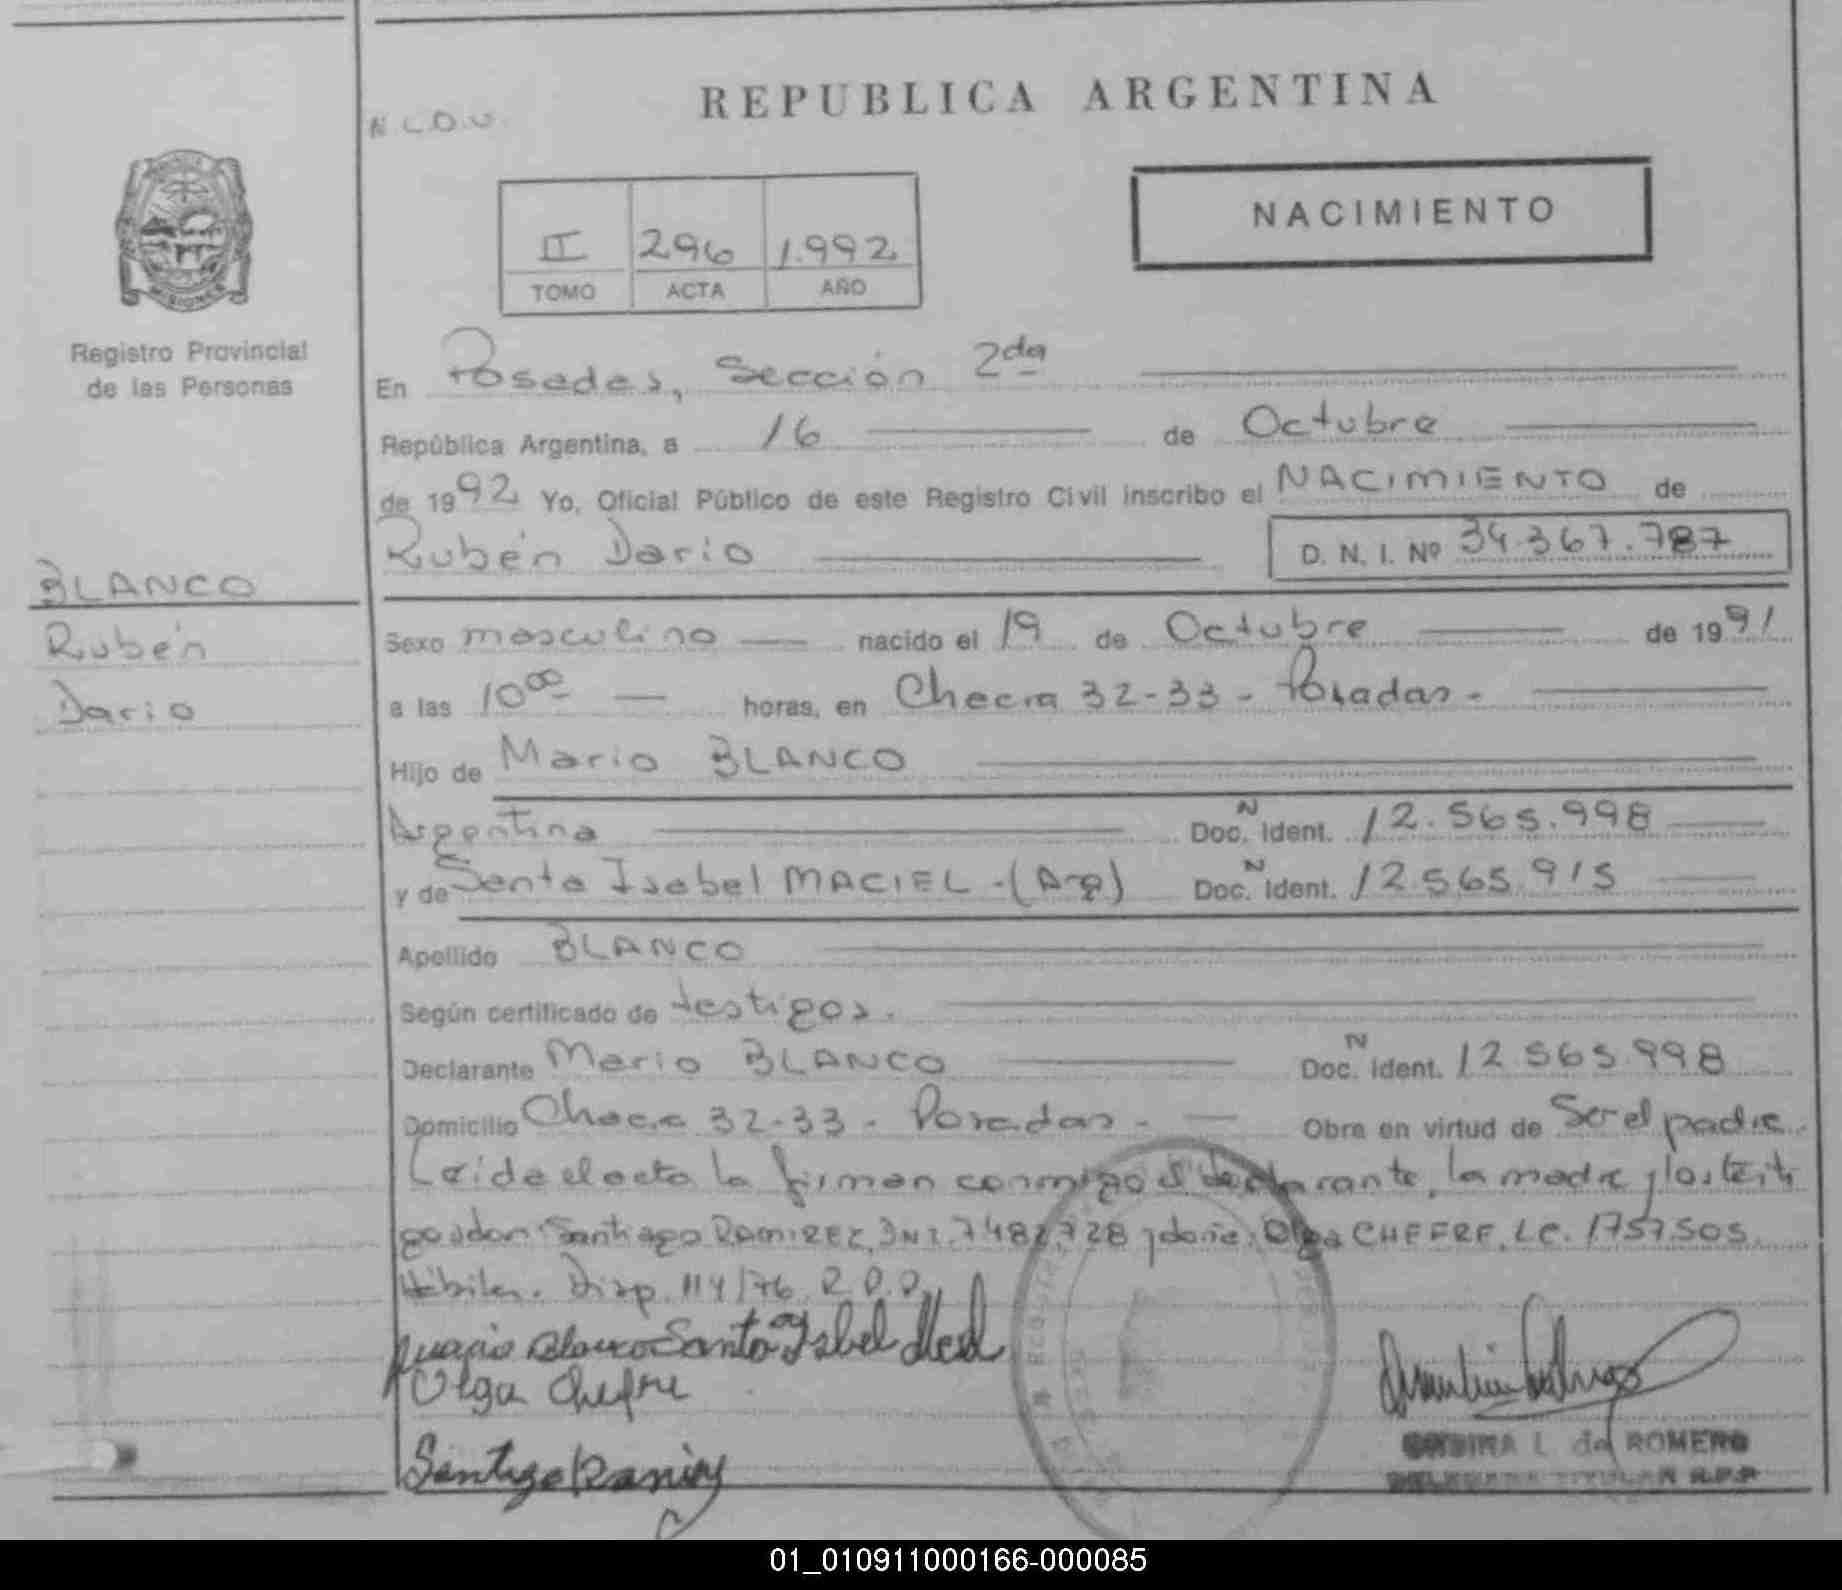 REPUBLICA ARGENTINA
N.L.D.U.
NACIMIENTO
II 296 1.992
TOMO ACTA AÑO
MISIONES
Registro Provincial
de las Personas
BLANCO
Rubén
Dario
En Posadas, Sección 2da
República Argentina, a 16 de Octubre
de 1992 Yo, Oficial Público de este Registro Civil inscribo el NACIMIENTO de
Rubén Dario D. N. I. Nº 34.367.787
Sexo masculino nacido el 19 de Octubre de 1991
a las 10 00 horas, en Chacra 32-33 - Posadas -
Hijo de Mario BLANCO
Argentina Doc. N Ident. 12.565.998
y de Santa Isabel MACIEL - (Arg) Doc. N Ident. 12.565.915
Apellido BLANCO
Según certificado de testigos.
Declarante Mario BLANCO Doc. N Ident. 12.565.998
Domicilio Chacra 32-33 - Posadas - Obra en virtud de Ser el padre.
Leída el acta la firman conmigo el declarante, la madre y los testi
gos don Santiago RAMIREZ, DNI. 7482.728 y doña: Olga CHEFRE, LC. 1757.505.
Hábiles. Disp. 114/76. R.P.P.
Blanco Santa Isabel
Olga Chefre
Santiago Ramirez
L. de ROMERO
TITULAR R.P.P
01_010911000166-000085